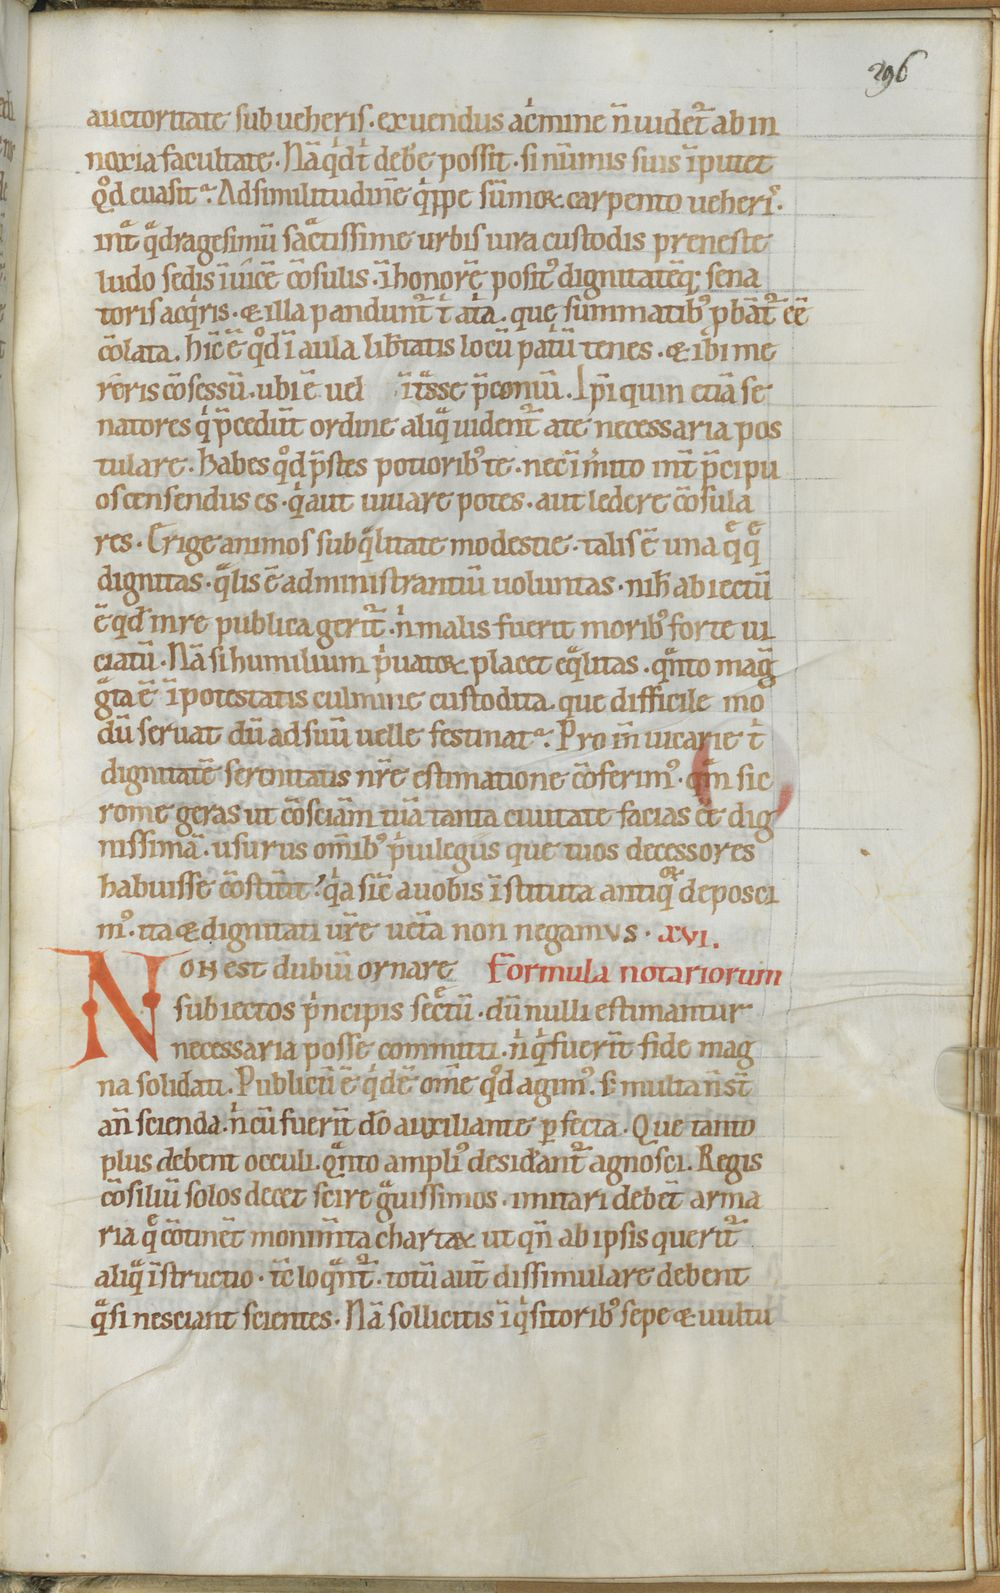 296
auctoritate subueheris. exuendus acͥmine n̄ uidet᷑ ab in
noxia facultate. Nā qͥd tͥ deb̄e possit. si nūmis suis īputet
qͦd euasit? Ad similitudinē qͥppe sūmoꝝ carpento ueherͥs.
intᷓ qᷓdragesimū saᷓctissime urbis uira custodis preneste
ludo sedis ī uice cōsulis. ī honorē positꝰ dignitatēq; sena
toris acqͥris. & illa pandunt᷑ tͥ atͥa. quę summatibꝰ ꝓbāt᷑ cē
cōlata. hīc ē qͦd ī aula libtatis locū patū tenes. & ibi me
rēris cōsessū. ubi ē uel ītᷓsse p̄coniū. Ip̄i quin etiā se
natores qͥ p̄cedūt ordine aliqᷓ uident᷑ a te necessaria pos
tulare. Habes qͦd p̄stes potioribꝰ te. nec īmͥito int̄ p̄cipu
os censendus es. qͥ aut iuuare potes. aut ledere cōsula
res. Erige animos sub qᷓlitate modestie. talis ē una qͤqͤ
dignitas. qᷓlis ē administrantiū uoluntas. nih̄ abiectū
ē qd̄ in re publica gerit᷑. nͥ malis fuerit moribꝰ forte ui
ciatū. Nā si humilium pͥuatoꝝ placet eqᷓlitas. qᷓnto mag̅
gᷓta ē ī potestatis culmine custodita. que difficile mo
dū seruat dū ad suū uelle festinat? Pro īn uicarie tͥ
dignitatē serenitatis nr̄e estimatione cōferimꝰ. qm̄ sic
rome geras ut cōsciām tuā tanta ciuitate facias cē dig
nissimā. usurus om̄ibꝰ pͥuilegiis que tuos decessores
habuisse cōstitit? qͥa sic̄ a uobis īstituta antiqꝝ deposci
mꝰ. ita & dignitati ur̄e uet̄a non negamus. XVI.
Non est dubiū ornare Formula notariorum
subiectos pͥncipis secͤtū. dū nulli estimantur
necessaria posse committi. nͥ qͥ fuerīt fide mag
na solidati. Publicū ē qͥdē om̄e qͦd agimꝰ. s; multa n̄ st̄
an̄ scienda. nͥ cū fuerīt do auxiliante ꝑfecta. Que tanto
plus debent occuli. qᷓnto ampliꝰ desidant᷑ agnosci. Regis
cōsiliū solos decet scire gᷓuissimos. imitari debēt arma
ria qͤ cōtinēt monim̄ta chartaꝝ ut qn̄ ab ipsis querit᷑
aliqᷓ īstructio. tc̄ loqᷓnt᷑. totū aut̄ dissimulare debent
qᷓsi nesciant scientes. Nā sollicitis īqͥsitoribꝰ sepe & uultu